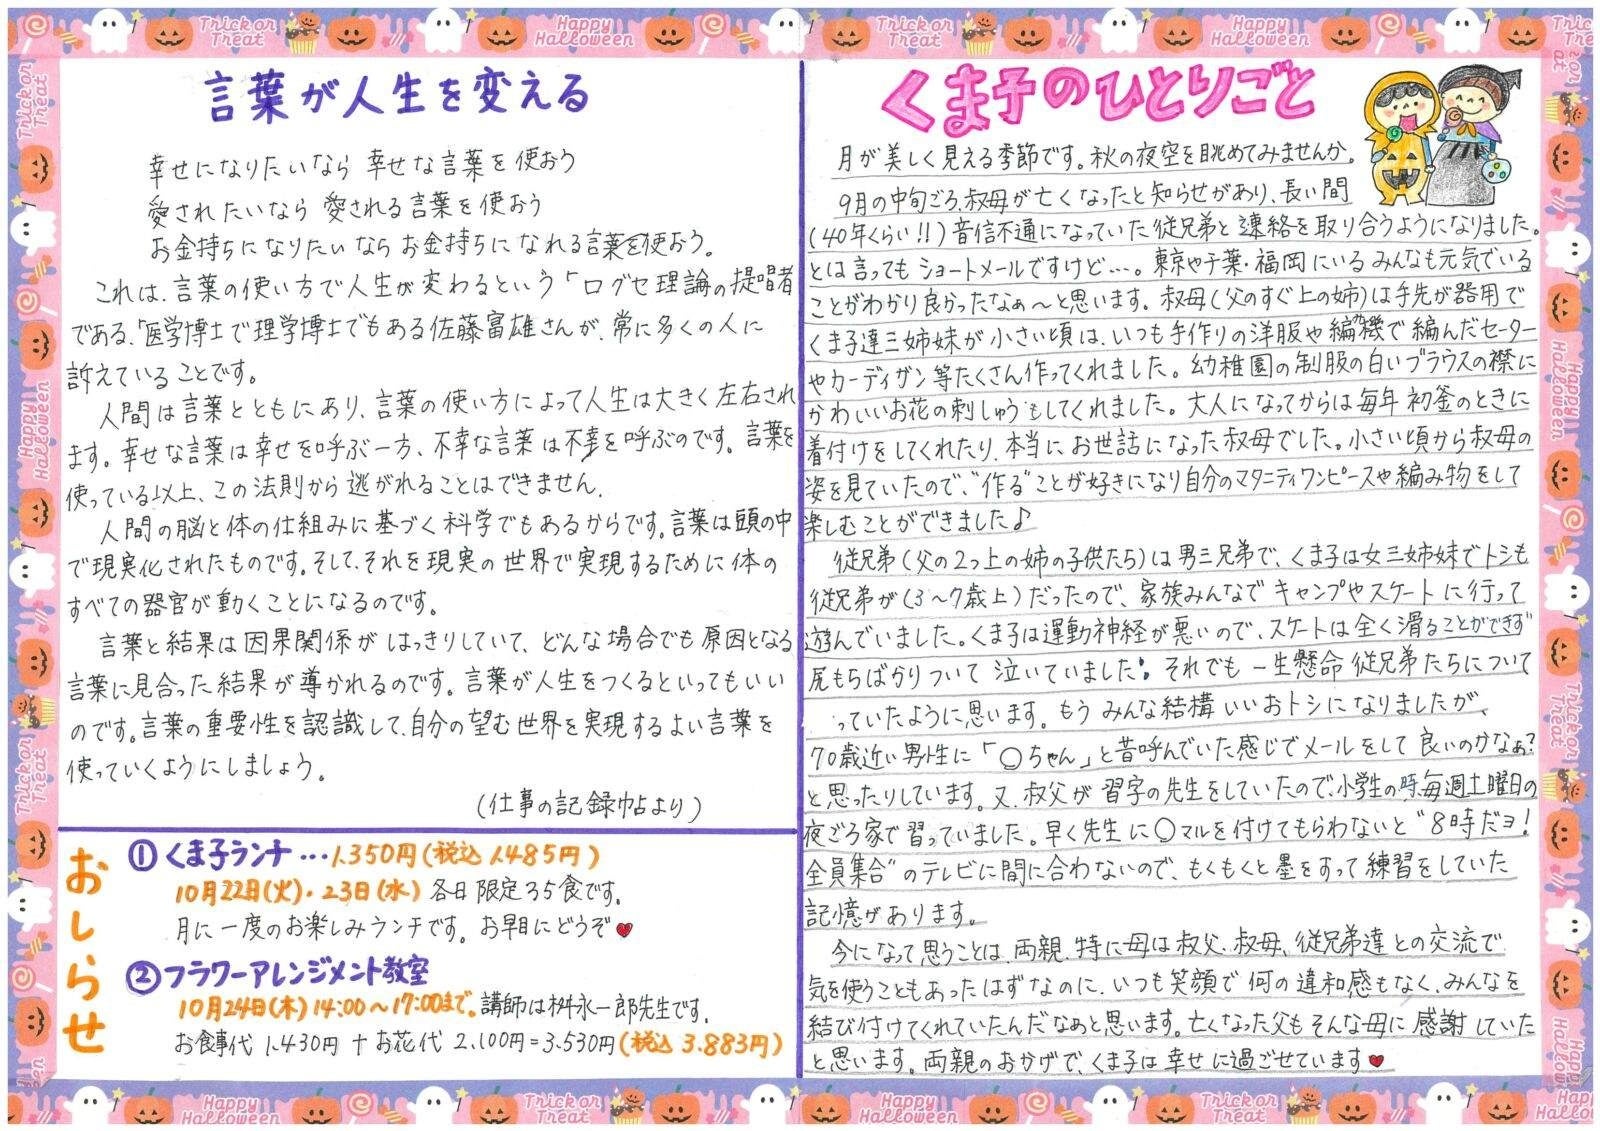 言葉が人生を変える
幸せになりたいなら 幸せな言葉を使おう
愛されたいなら 愛される言葉を使おう
お金持ちになりたいならお金持ちになれる言葉を使おう。
これは、言葉の使い方で人生が変わるという「口グセ理論の提唱者
である、医学博士で理学博士でもある佐藤富雄さんが、常に多くの人に
訴えていることです。
人間は言葉とともにあり、言葉の使い方によって人生は大きく左右され
ます。幸せな言葉は幸せを呼ぶ一方、不幸な言葉は不幸を呼ぶのです。言葉を
使っている以上、この法則から逃がれることはできません。
人間の脳と体の仕組みに基づく科学でもあるからです。言葉は頭の中
で現実化されたものです。そして、それを現実の世界で実現するために体の
すべての器官が動くことになるのです。
言葉と結果は因果関係がはっきりしていて、どんな場合でも原因となる
言葉に見合った結果が導かれるのです。言葉が人生をつくるといってもいい
のです。言葉の重要性を認識して、自分の望む世界を実現するよい言葉を
使っていくようにしましょう。
(仕事の記録帖より)
おしらせ
① くま子ランチ…1.350円(税込 1.485円)
10月22日(火)・23日(水) 各日限定35食です。
月に一度のお楽しみランチです。お早目にどうぞ♥
② フラワーアレンジメント教室
10月24日(木)14:00〜17:00まで。講師は桝永一郎先生です。
お食事代 1.430円 + お花代 2.100円=3.530円(税込 3.883円)
くま子のひとりごと
月が美しく見える季節です。秋の夜空を眺めてみませんか。
9月の中旬ごろ、叔母が亡くなったと知らせがあり、長い間
(40年くらい!!)音信不通になっていた従兄弟と連絡を取り合うようになりました。
とは言ってもショートメールですけど…。東京や千葉・福岡にいるみんなも元気でいる
ことがわかり良かったなぁ〜と思います。叔母(父のすぐ上の姉)は手先が器用で
くま子達三姉妹が小さい頃は、いつも手作りの洋服や編機で編んだセーター
やカーディガン等たくさん作ってくれました。幼稚園の制服の白いブラウスの襟に
かわいいお花の刺しゅうもしてくれました。大人になってからは毎年初釜のときに
着付けをしてくれたり、本当にお世話になった叔母でした。小さい頃から叔母の
姿を見ていたので、"作る"ことが好きになり自分のマタニティワンピースや編み物をして
楽しむことができました♪
従兄弟(父の2つ上の姉の子供たち)は男三兄弟で、くま子は女三姉妹でトシも
従兄弟が(3〜7歳上)だったので、家族みんなでキャンプやスケートに行って
遊んでいました。くま子は運動神経が悪いので、スケートは全く滑ることができず
尻もちばかりついて泣いていました! それでも一生懸命従兄弟たちについて
っていたように思います。もうみんな結構いいおトシになりましたが、
70歳近い男性に「○ちゃん」と昔呼んでいた感じでメールをして良いのかなぁ?
と思ったりしています。又、叔父が習字の先生をしていたので、小学生の時、毎週土曜日の
夜ごろ家で習っていました。早く先生に○マルを付けてもらわないと"8時だヨ!
全員集合"のテレビに間に合わないので、もくもくと墨をすって練習をしていた
記憶があります。
今になって思うことは、両親、特に母は叔父、叔母、従兄弟達との交流で
気を使うこともあったはずなのに、いつも笑顔で何の違和感もなく、みんなを
結び付けてくれていたんだなぁと思います。亡くなった父もそんな母に感謝していた
と思います。両親のおかげで、くま子は幸せに過ごせています♥
Trick or Treat
Happy Halloween